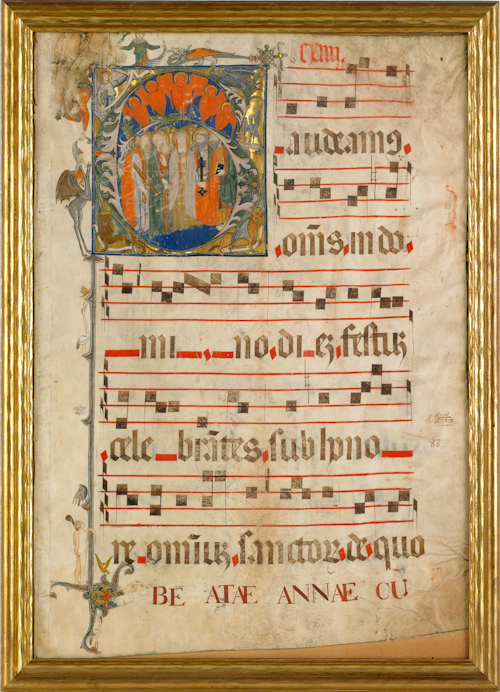 Gaudeamꝰ.
om̄s. in do.
mi no. di eʒ. festuʒ
cele brātes. sub hono
re omn̄iuʒ. sanctoꝝ. de quo
BE ATAE ANNAE CU